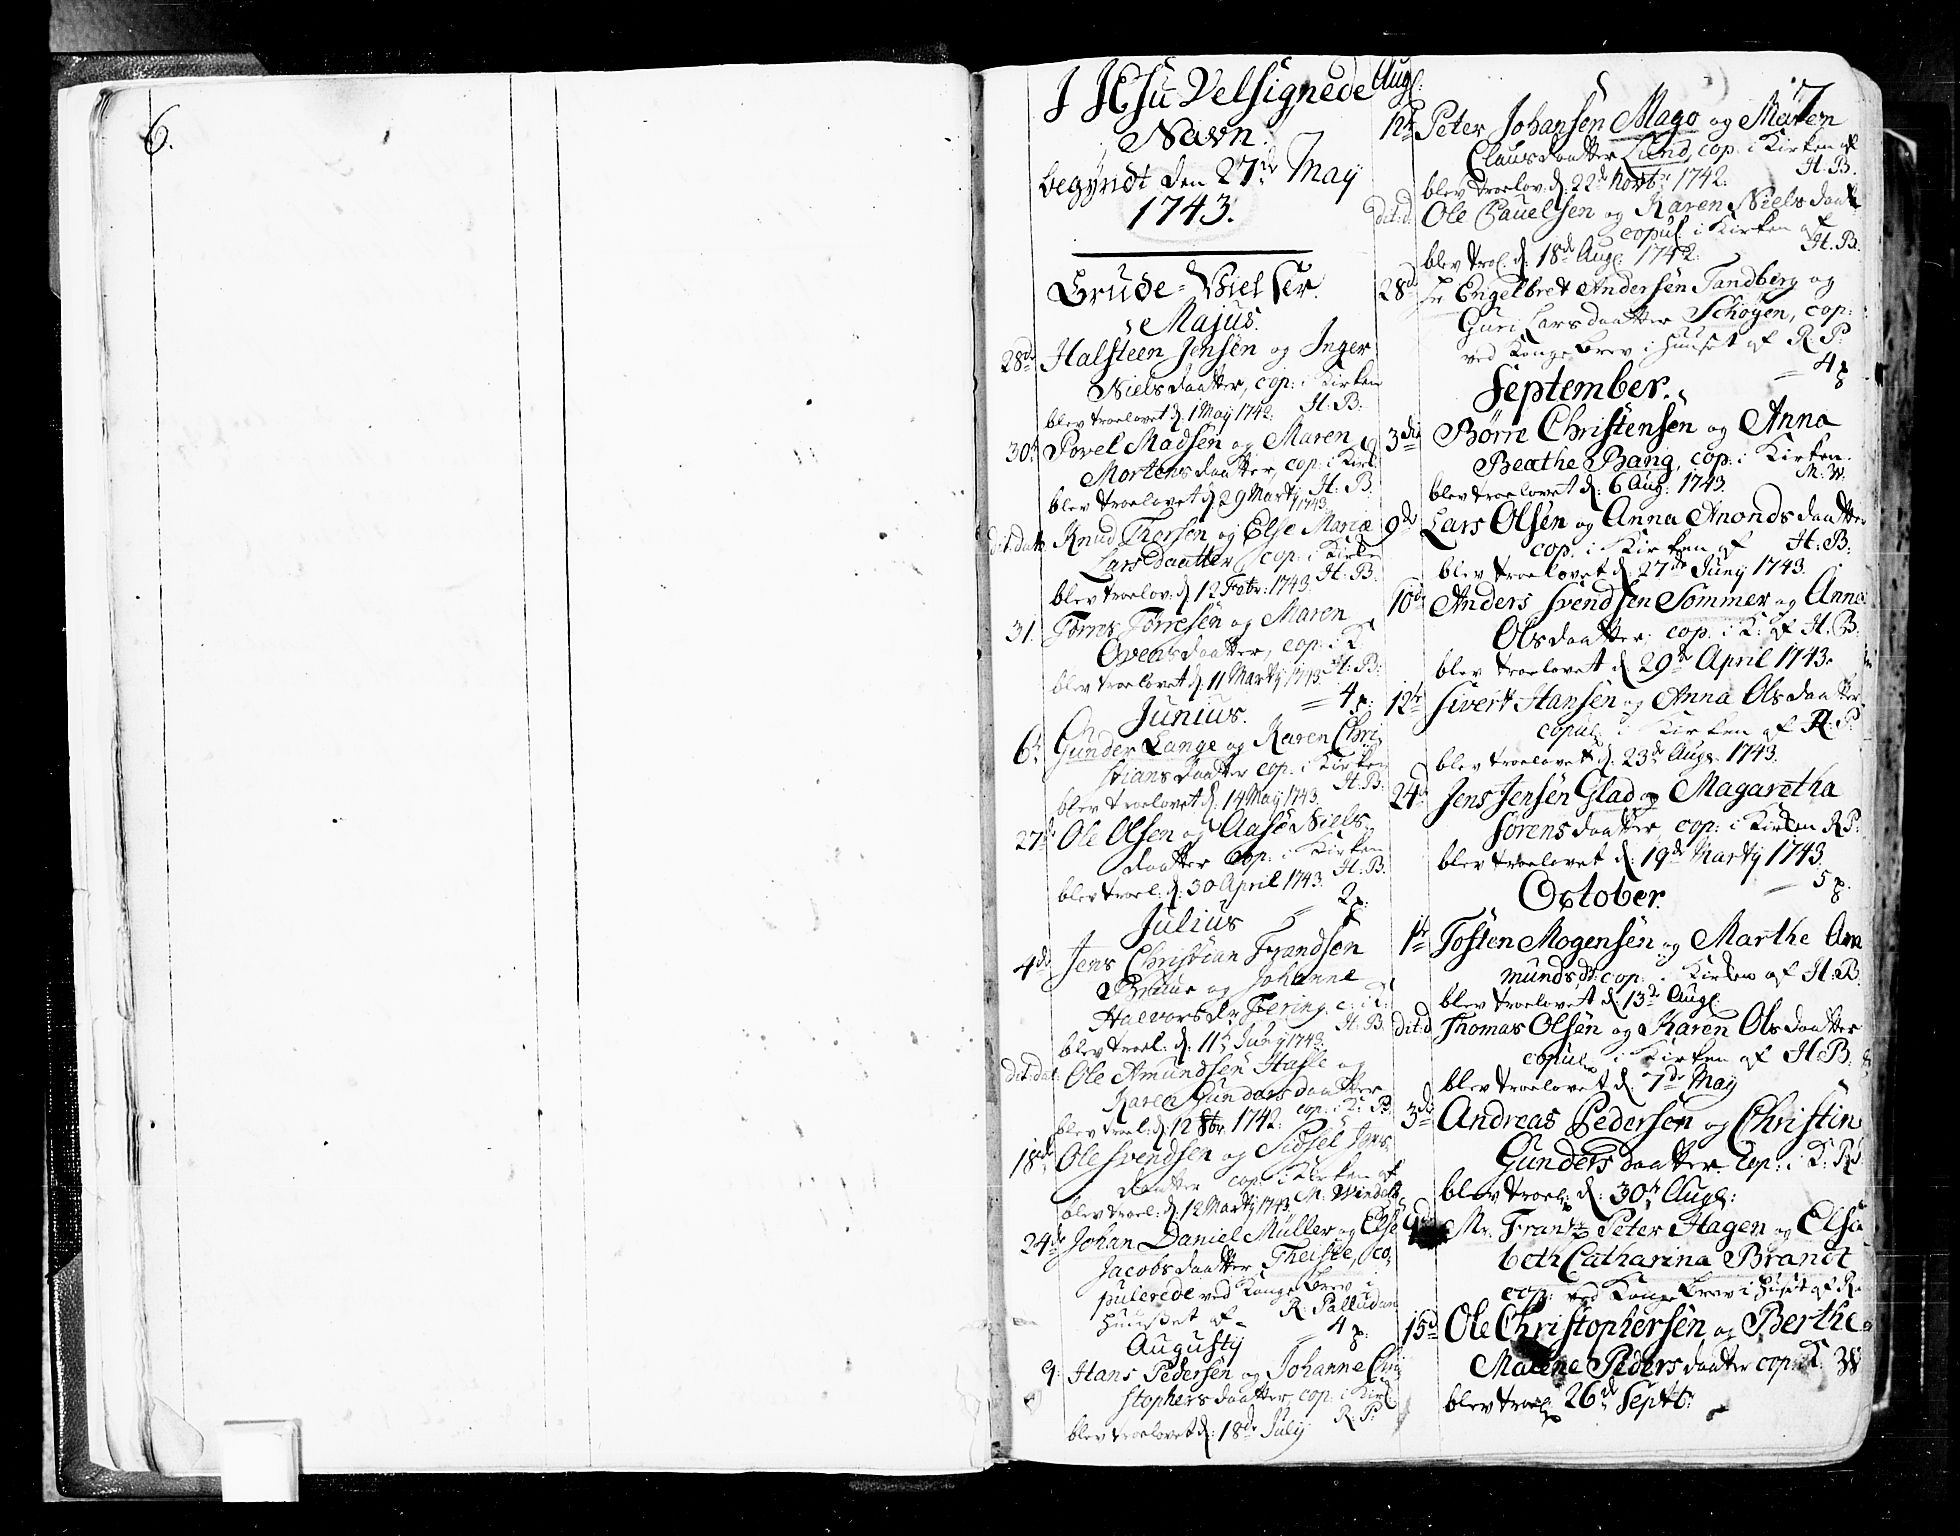 6.
I JEsu Velsignede
Navn.
begyndt den 27de May
1743.
Brude-Vielser.
Majus.
28de Halsteen Jensen og Inger
Nielsdaatter, cop: i Kirken
blev troelovet d. 1 May 1742. H: B:
30t Povel Madsen og Maren
Mortensdaatter, cop: i Kirk:
blev troelovet d. 29 Martij 1743. H: B:
dit. dato Knud Thersen og Else Maria
Larsdaatter cop: i Kirke
blev troelov: d. 12 Febr: 1743. H: B.
31. Torres Torresen og Maren
Ovensdaatter, cop: i K.
blev troelovet d. 11 Martij 1743 H: B:
= 4 p:
Junius.
6t Gunder Lange og Karen Chri
stiansdaatter cop: i Kirken
blev troelovet d. 14 May 1743. H: B:
27d Ole Olsen og Aase Niels
daatter cop: i Kirken
blev troel: d: 30 April 1743. H: B.
= 2 p:
Julius
4de Jens Christian Frandsen
Bruue og Johanne
Halvorsdr Fering. c: i K:
blev troel: d: 11t Junij 1743. H: B.
dit. dat: Ole Amundsen Hasle og
Karen Gundersdaatter
blev troel: d: 12 8br. 1742. cop: i K: R: P:
18de Ole Svendsen og Sidsel Jens
daatter cop: i Kirken af
blev troel: d: 12 Martij 1743. M: Windelb.
24de Johan Daniel Müller og Else
Jacobsdaatter Theiste, co,
pulerede ved Konge Brev i
Huuset af R: Palludan
= 4 p:
Augustij
9. Hans Pedersen og Johanne Chri
stophersdaatter, cop: i Kirk
blev troelovet d: 18de July R: P:
7
Augl:
12te Peter Johansen Mago og Maren
Clausdaatter Lund, cop: i Kirken af
blev troelov: d: 22d Novbr: 1742. H: B.
dit: d: Ole Pauelsen og Karen Nielsdaat
copul: i Kirken af
blev troel: d: 18de Aug: 1742. H: B.
28d Sr Engelbret Andersen Tandberg og
Guri Larsdaatter Schøyen, cop:
ved Konge Brev i Huuset af R: P:
= 4 p
September.
3die Børre Christensen og Anna
Beathe Bang, cop: i Kirken.
blev troelovet d: 6 Aug: 1743. M: W.
9de Lars Olsen og Anna Anondsdaatter
cop. i Kirken af H: B:
blev troelovet d: 27de Junij 1743.
10de Anders Svendsen Sommer og Anne
Olsdaatter. cop. i K: af H: B:
blev troelovet d. 29de April 1743.
12te Sivert Hansen og Anna Olsdaatter
copul: i Kirken af R: P:
blev troelovet d. 23de Augl. 1743.
24d Jens Jensen Glad og Magaretha
Sørensdaatter, cop: i Kirken R P:
blev troelovet d: 19de Martij 1743.
= 5 p.
October.
1te Tosten Mogensen og Marthe Am
mundsdt: cop: i Kirken af H: B.
blev troelovet d: 13de Augl:
dit: d Thomas Olsen og Karen Olsdaatter
copul: i Kirken af H: B.
blev troelovet d: 7de May
3de Andreas Pedersen og Christin
Gundersdaatter. Cop: i K: R P:
blev troel: d: 30te Augl:
9d Mr. Frantz Peter Hagen og Elsa
beth Catharina Brandt
cop: ved Konge Brev i Huset af R.
15d Ole Christophersen og Berthe
Malene Pedersdaatter cop: K: W
blev troel: 26de Septbr: